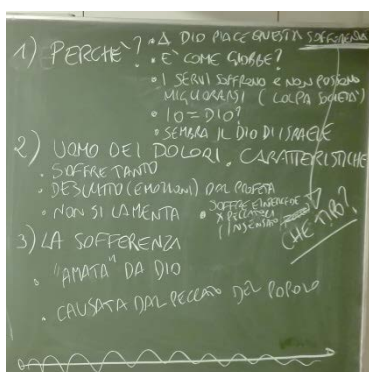 1) PERCHÈ? • A DIO PIACE QUESTA SOFFERENZA
• È COME GIOBBE?
• I SERVI SOFFRONO E NON POSSONO
MIGLIORARSI (COLPA SOCIETÀ)
• IO = DIO?
• SEMBRA IL DIO DI ISRAELE
2) UOMO DEI DOLORI, CARATTERISTICHE
• SOFFRE TANTO
• (EMOZIONI) DAL PROFETA
• NON SI LAMENTA
• SOFFRE E INTERCEDE
X PECCATORI
CHE TIPO?
3) LA SOFFERENZA
• "AMATA" DA DIO
• CAUSATA DAL PECCATO DEL POPOLO